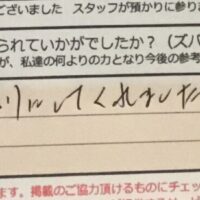 ございました スタッフが預かりに参りま
られていかがでしたか？（ズバ
が、私達の何よりの力となり今後の参考
りにしてくれました
ます。掲載のご協力頂けるものにチェッ